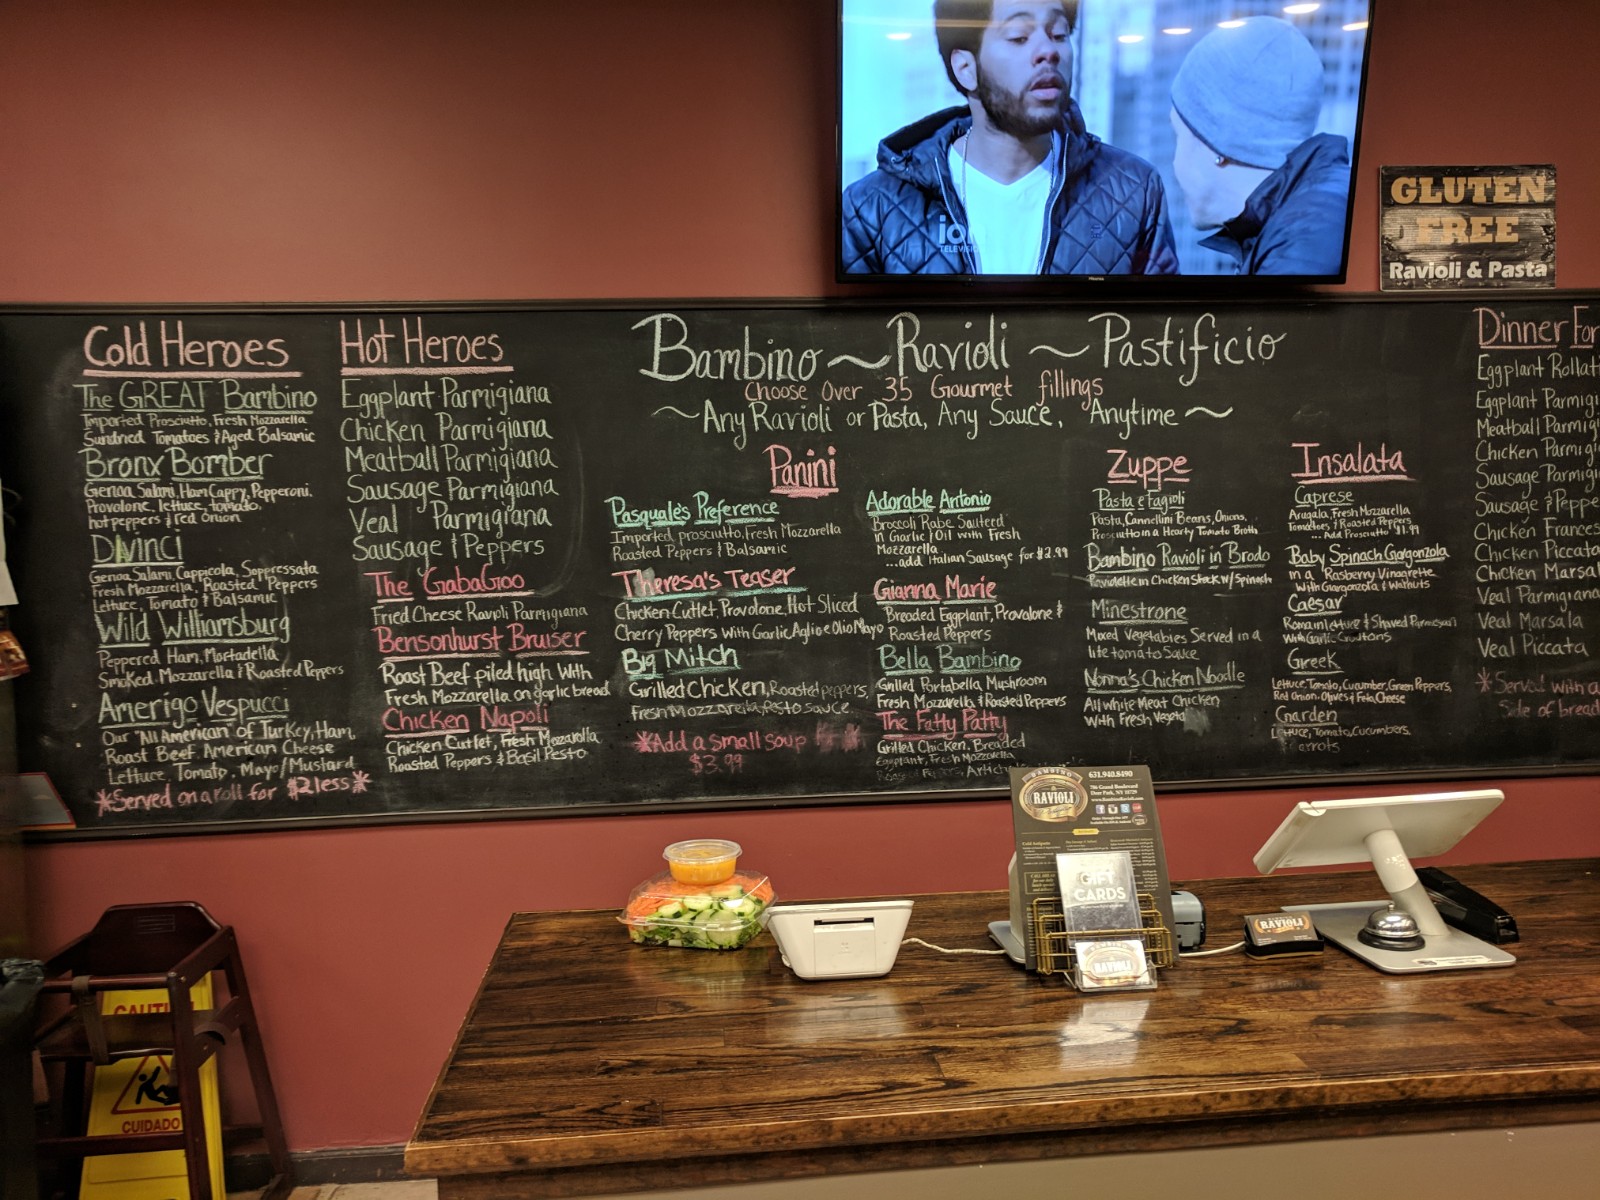 ion
TELEVISION
Hisense
GLUTEN
FREE
Ravioli & Pasta
Cold Heroes
The GREAT Bambino
Imported Prosciutto, Fresh Mozzarella
Sundried Tomatoes & Aged Balsamic
Bronx Bomber
Genoa Salami, Ham Cappy, Pepperoni,
Provolone, lettuce, tomato,
hot peppers & red onion
DaVinci
Genoa Salami, Cappicola, Soppressata
Fresh Mozzarella, Roasted Peppers
Lettuce, Tomato & Balsamic
Wild Williamsburg
Peppered Ham, Mortadella
Smoked Mozzarella & Roasted Peppers
Amerigo Vespucci
Our "All American" of Turkey, Ham,
Roast Beef, American Cheese
Lettuce, Tomato, Mayo/Mustard
*Served on a roll for $2 less*
Hot Heroes
Eggplant Parmigiana
Chicken Parmigiana
Meatball Parmigiana
Sausage Parmigiana
Veal Parmigiana
Sausage & Peppers
The GabaGoo
Fried Cheese Ravioli Parmigiana
Bensonhurst Bruiser
Roast Beef piled high with
Fresh Mozzarella on garlic bread
Chicken Napoli
Chicken Cutlet, Fresh Mozzarella
Roasted Peppers & Basil Pesto
Bambino ~ Ravioli ~ Pastificio
Choose Over 35 Gourmet fillings
~ Any Ravioli or Pasta, Any Sauce, Anytime ~
Panini
Pasquale's Preference
Imported prosciutto, Fresh Mozzarella
Roasted Peppers & Balsamic
Theresa's Teaser
Chicken Cutlet, Provolone, Hot Sliced
Cherry Peppers with Garlic, Aglio e Olio Mayo
Big Mitch
Grilled Chicken, Roasted peppers,
Fresh Mozzarella, Pesto sauce
*Add a small soup
$3.99
Adorable Antonio
Broccoli Rabe Sauteed
in Garlic & Oil with Fresh
Mozzarella
...add Italian Sausage for $2.99
Gianna Marie
Breaded Eggplant, Provolone &
Roasted Peppers
Bella Bambino
Grilled Portabella Mushroom
Fresh Mozzarella & Roasted Peppers
The Fatty Patty
Grilled Chicken, Breaded
Eggplant, Fresh Mozzarella
Roasted Peppers,
Zuppe
Pasta e Fagioli
Pasta, Cannellini Beans, Onions,
Prosciutto in a Hearty Tomato Broth
Bambino Ravioli in Brodo
Raviolette in Chicken Stock w/ Spinach
Minestrone
Mixed Vegetables Served in a
lite tomato Sauce
Nonna's Chicken Noodle
All White Meat Chicken
With Fresh Vegeta
Insalata
Caprese
Arugala, Fresh Mozzarella
Tomatoes & Roasted Peppers
...Add Prosciutto $1.99
Baby Spinach Gorgonzola
in a Rasberry Vinagrette
With Gorgonzola & Walnuts
Caesar
Romain lettuce & Shaved Parmesan
With Garlic Croutons
Greek
Lettuce, Tomato, Cucumber, Green Peppers,
Red Onion, Olives & Feta Cheese
Garden
Lettuce, Tomato, Cucumbers,
Carrots
Dinner For
Eggplant Rollati
Eggplant Parmigi
Meatball Parmigi
Chicken Parmigi
Sausage Parmigi
Sausage & Peppe
Chicken Frances
Chicken Piccata
Chicken Marsal
Veal Parmigiana
Veal Marsala
Veal Piccata
*Served with a
Side of bread
BAMBINO
RAVIOLI
631.940.8490
786 Grand Boulevard
Deer Park, NY 11729
GIFT
CARDS
RAVIOLI
RAVIOLI
CAUTI
CUIDADO